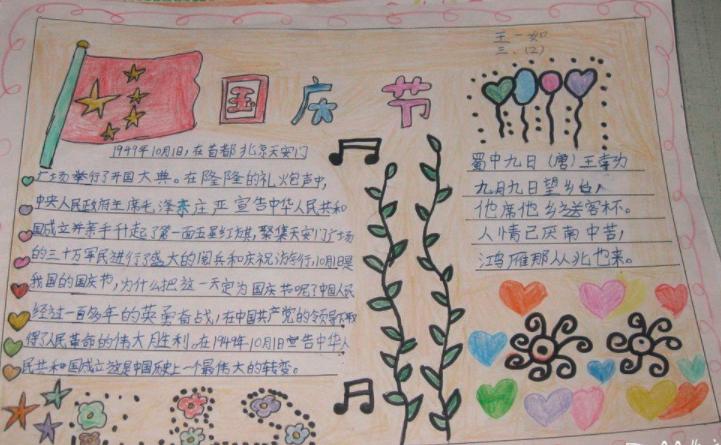 王一如
三、(2)
国庆节
1949年10月1日,在首都北京天安门
广场举行了开国大典。在隆隆的礼炮声中,
中央人民政府主席毛泽东庄严宣告中华人民共和
国成立并亲手升起了第一面五星红旗,聚集天安门广场
的三十万军民进行了盛大的阅兵和庆祝游行,10月1日是
我国的国庆节,为什么把这一天定为国庆节呢?中国人民
经过一百多年的英勇奋战,在中国共产党的领导下取
得了人民革命的伟大胜利。在1949年10月1日宣告中华人
民共和国成立这是中国历史上一个最伟大的转变。
蜀中九日(唐)王勃为
九月九日望乡台,
他席他乡送客杯。
人情已厌南中苦,
鸿雁那从北地来。